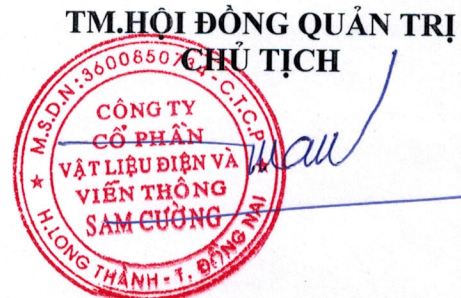 TM.HỘI ĐỒNG QUẢN TRỊ
CHỦ TỊCH
M.S.D.N:3600850734-C.T.C.P
CÔNG TY
CỔ PHẦN
VẬT LIỆU ĐIỆN VÀ
VIỄN THÔNG
SAM CƯỜNG
H.LONG THÀNH-T. ĐỒNG NAI